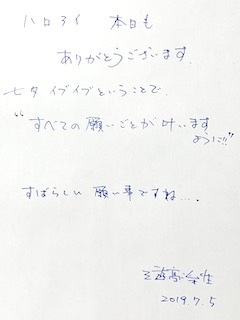 ハロライ 本日も
ありがとうございます.
七夕イブイブということで.
"すべての願いごとが叶います
ように!!"
すばらしい 願い事ですね....
2019.7.5